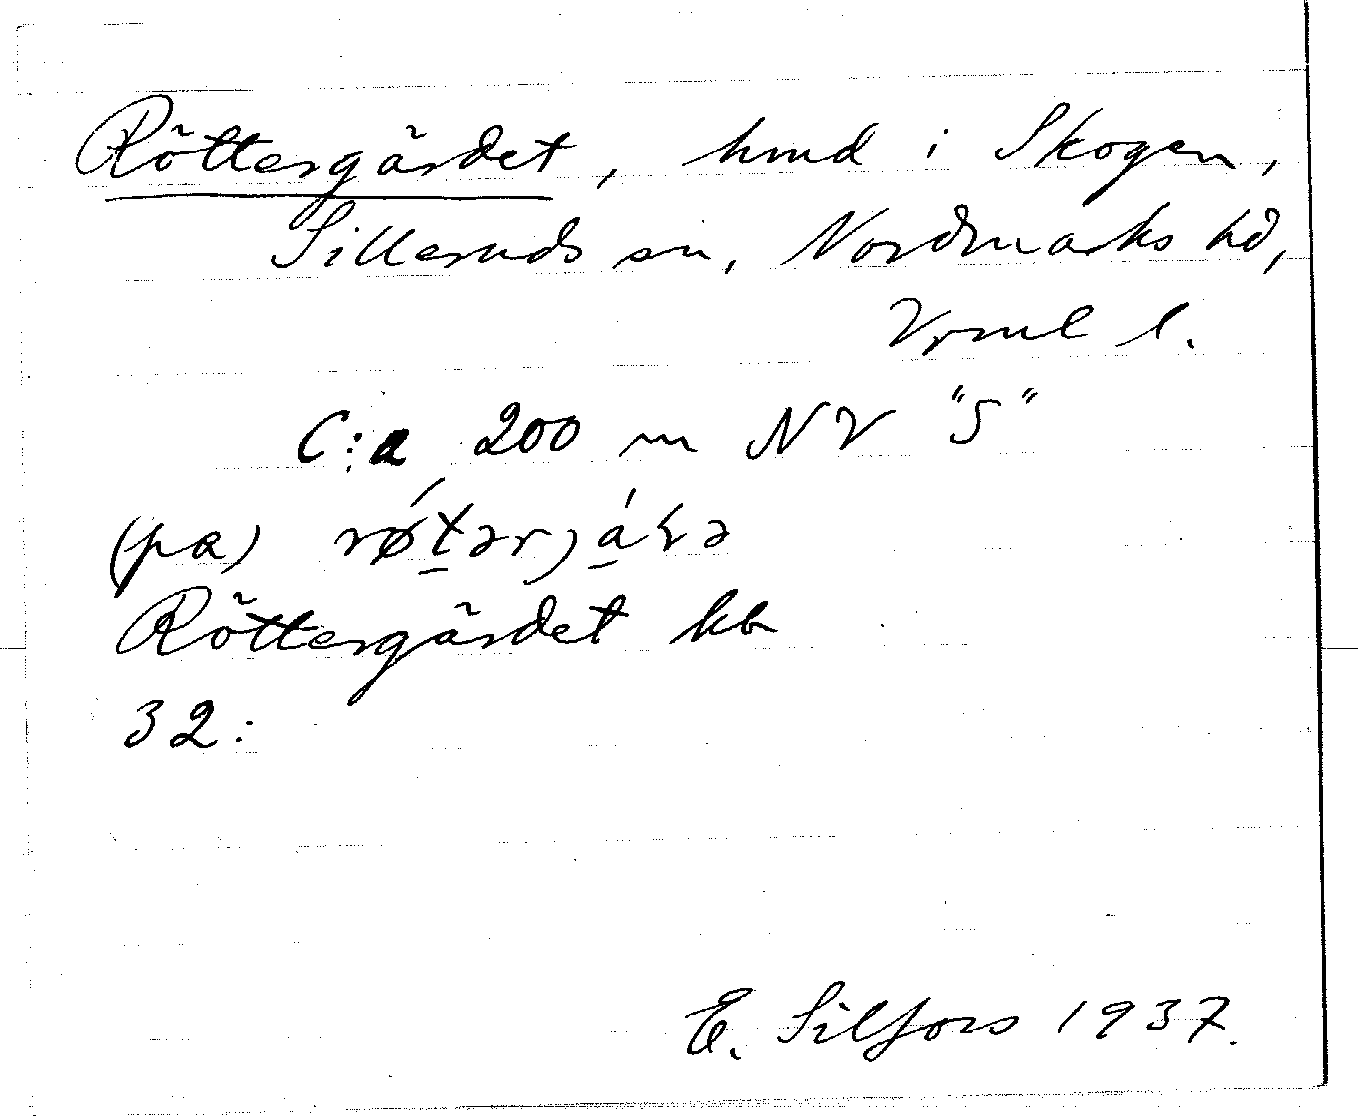 Röttergärdet, hmd i Skogen,
Silleruds sn, Nordmarks hd,
Vrml l.
C:a 200 m NV "S"
(på) røt̲ərjáɽə
Röttergärdet kb
32:
E. Silfors 1937.